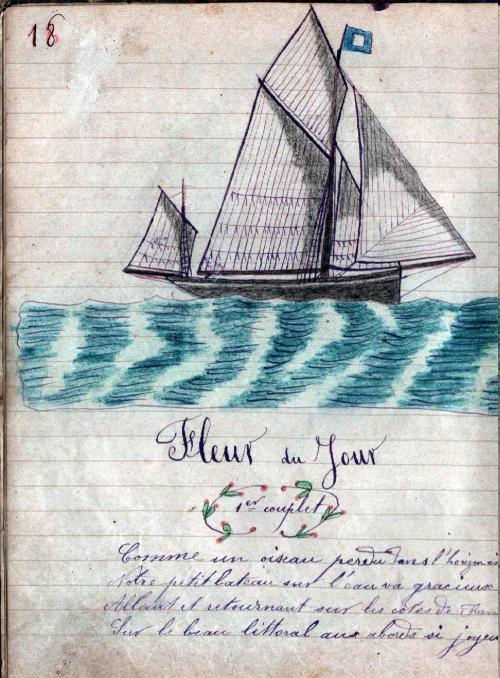 18
Fleur du Jour
1er couplet
Comme un oiseau perdu dans l'horizon
Notre petit bateau sur l'eau va gracieux
Allant et retournant sur les côtes de
Sur le beau littoral aux abords si joyeu